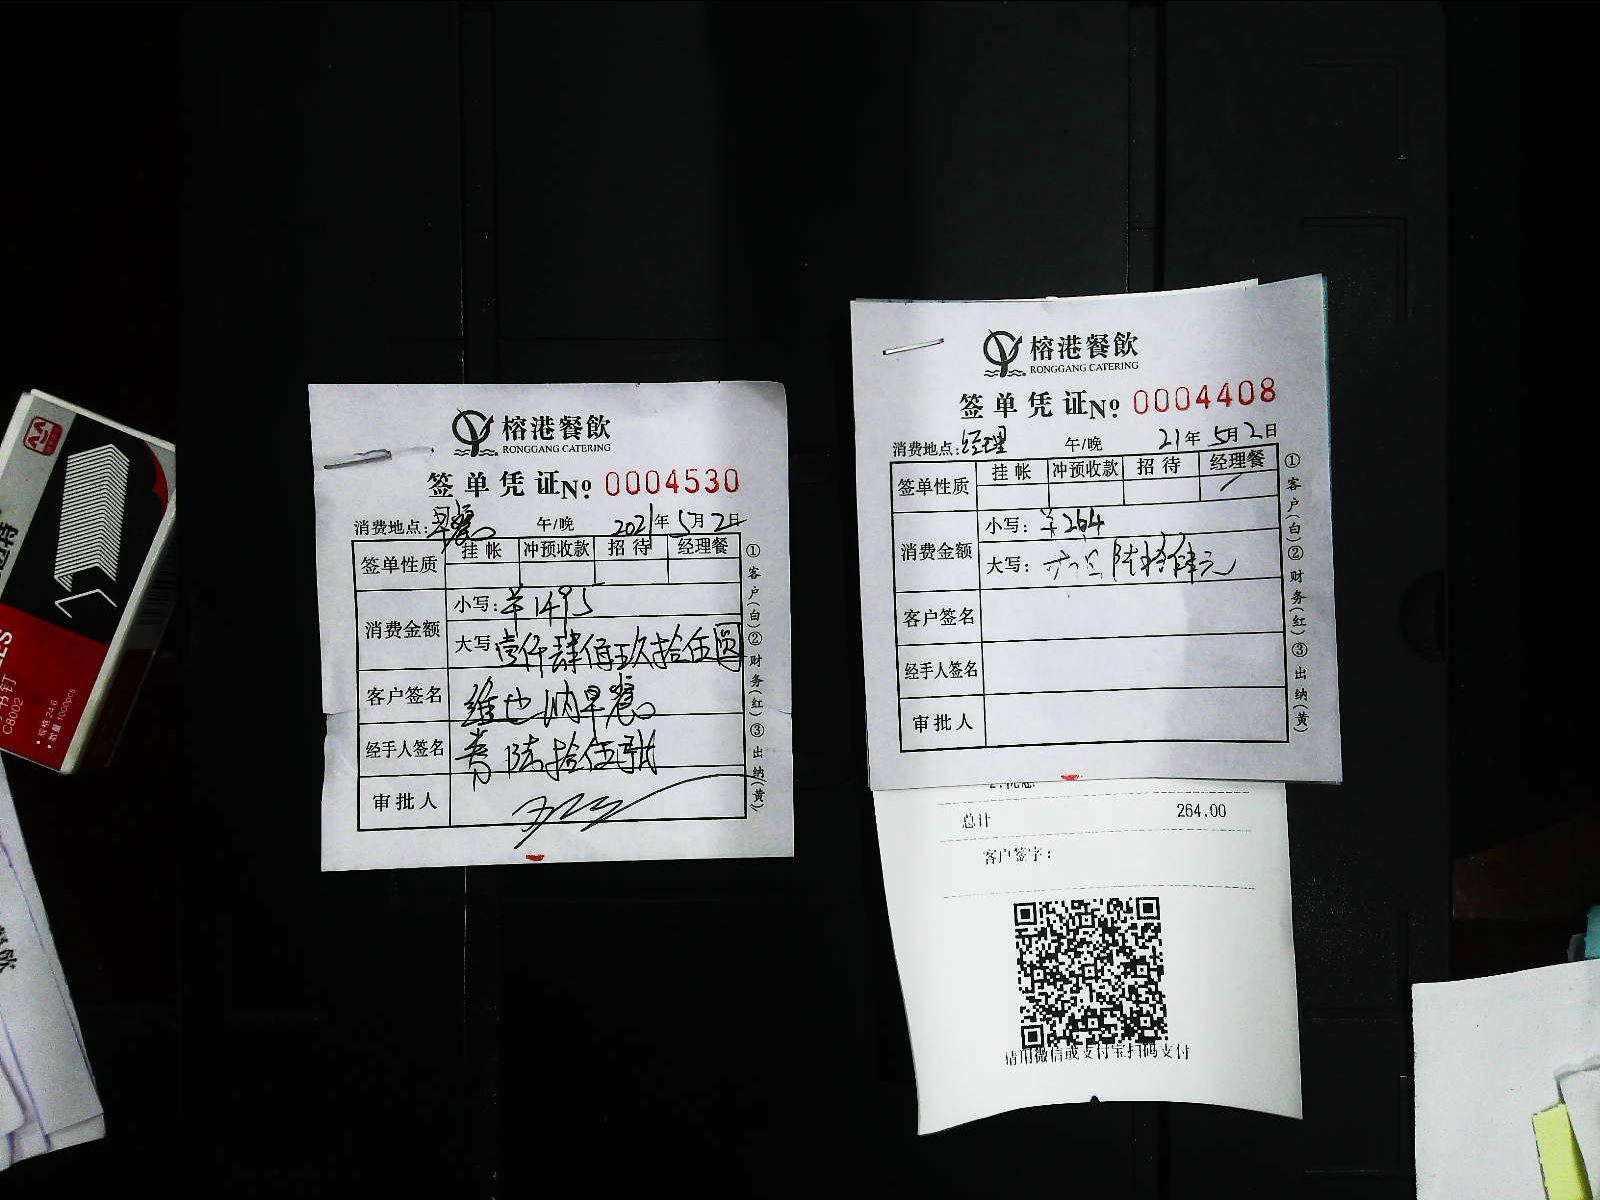 榕港餐飲
RONGGANG CATERING
签单凭证No 0004530
消费地点:早餐 午/晚 2021年5月2日
签单性质 挂帐 冲预收款 招待 经理餐
消费金额 小写:¥1495
大写 壹仟肆佰玖拾伍圆
客户签名 维也纳早餐
经手人签名 陆拾伍张
审批人
①客户(白)②财务(红)③出纳(黄)
榕港餐飲
RONGGANG CATERING
签单凭证No 0004408
消费地点:经理 午/晚 21年5月2日
签单性质 挂帐 冲预收款 招待 经理餐
消费金额 小写:¥264
大写: 陆拾肆元
客户签名
经手人签名
审批人
①客户(白)②财务(红)③出纳(黄)
总计 264.00
客户签字:
请用微信或支付宝扫码支付
书钉
C8002
规格 24/6
数量 1000pcs